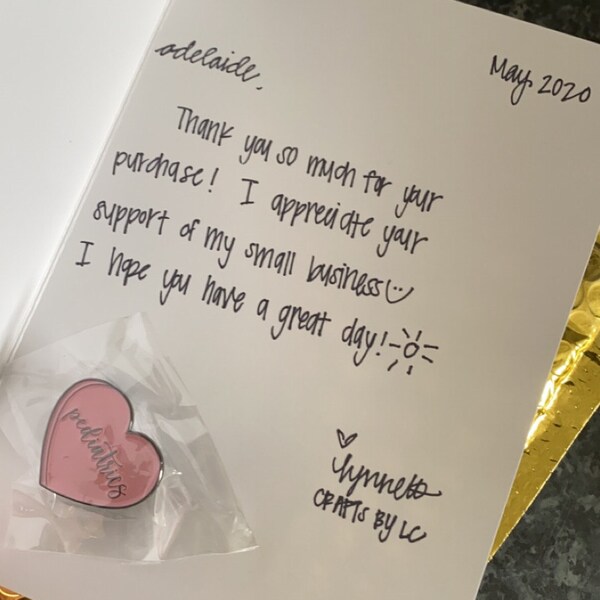 adelaide,
May 2020
Thank you so much for your
purchase! I appreciate your
support of my small business
I hope you have a great day!
lynnette
CRAFTS BY LC
pediatrics